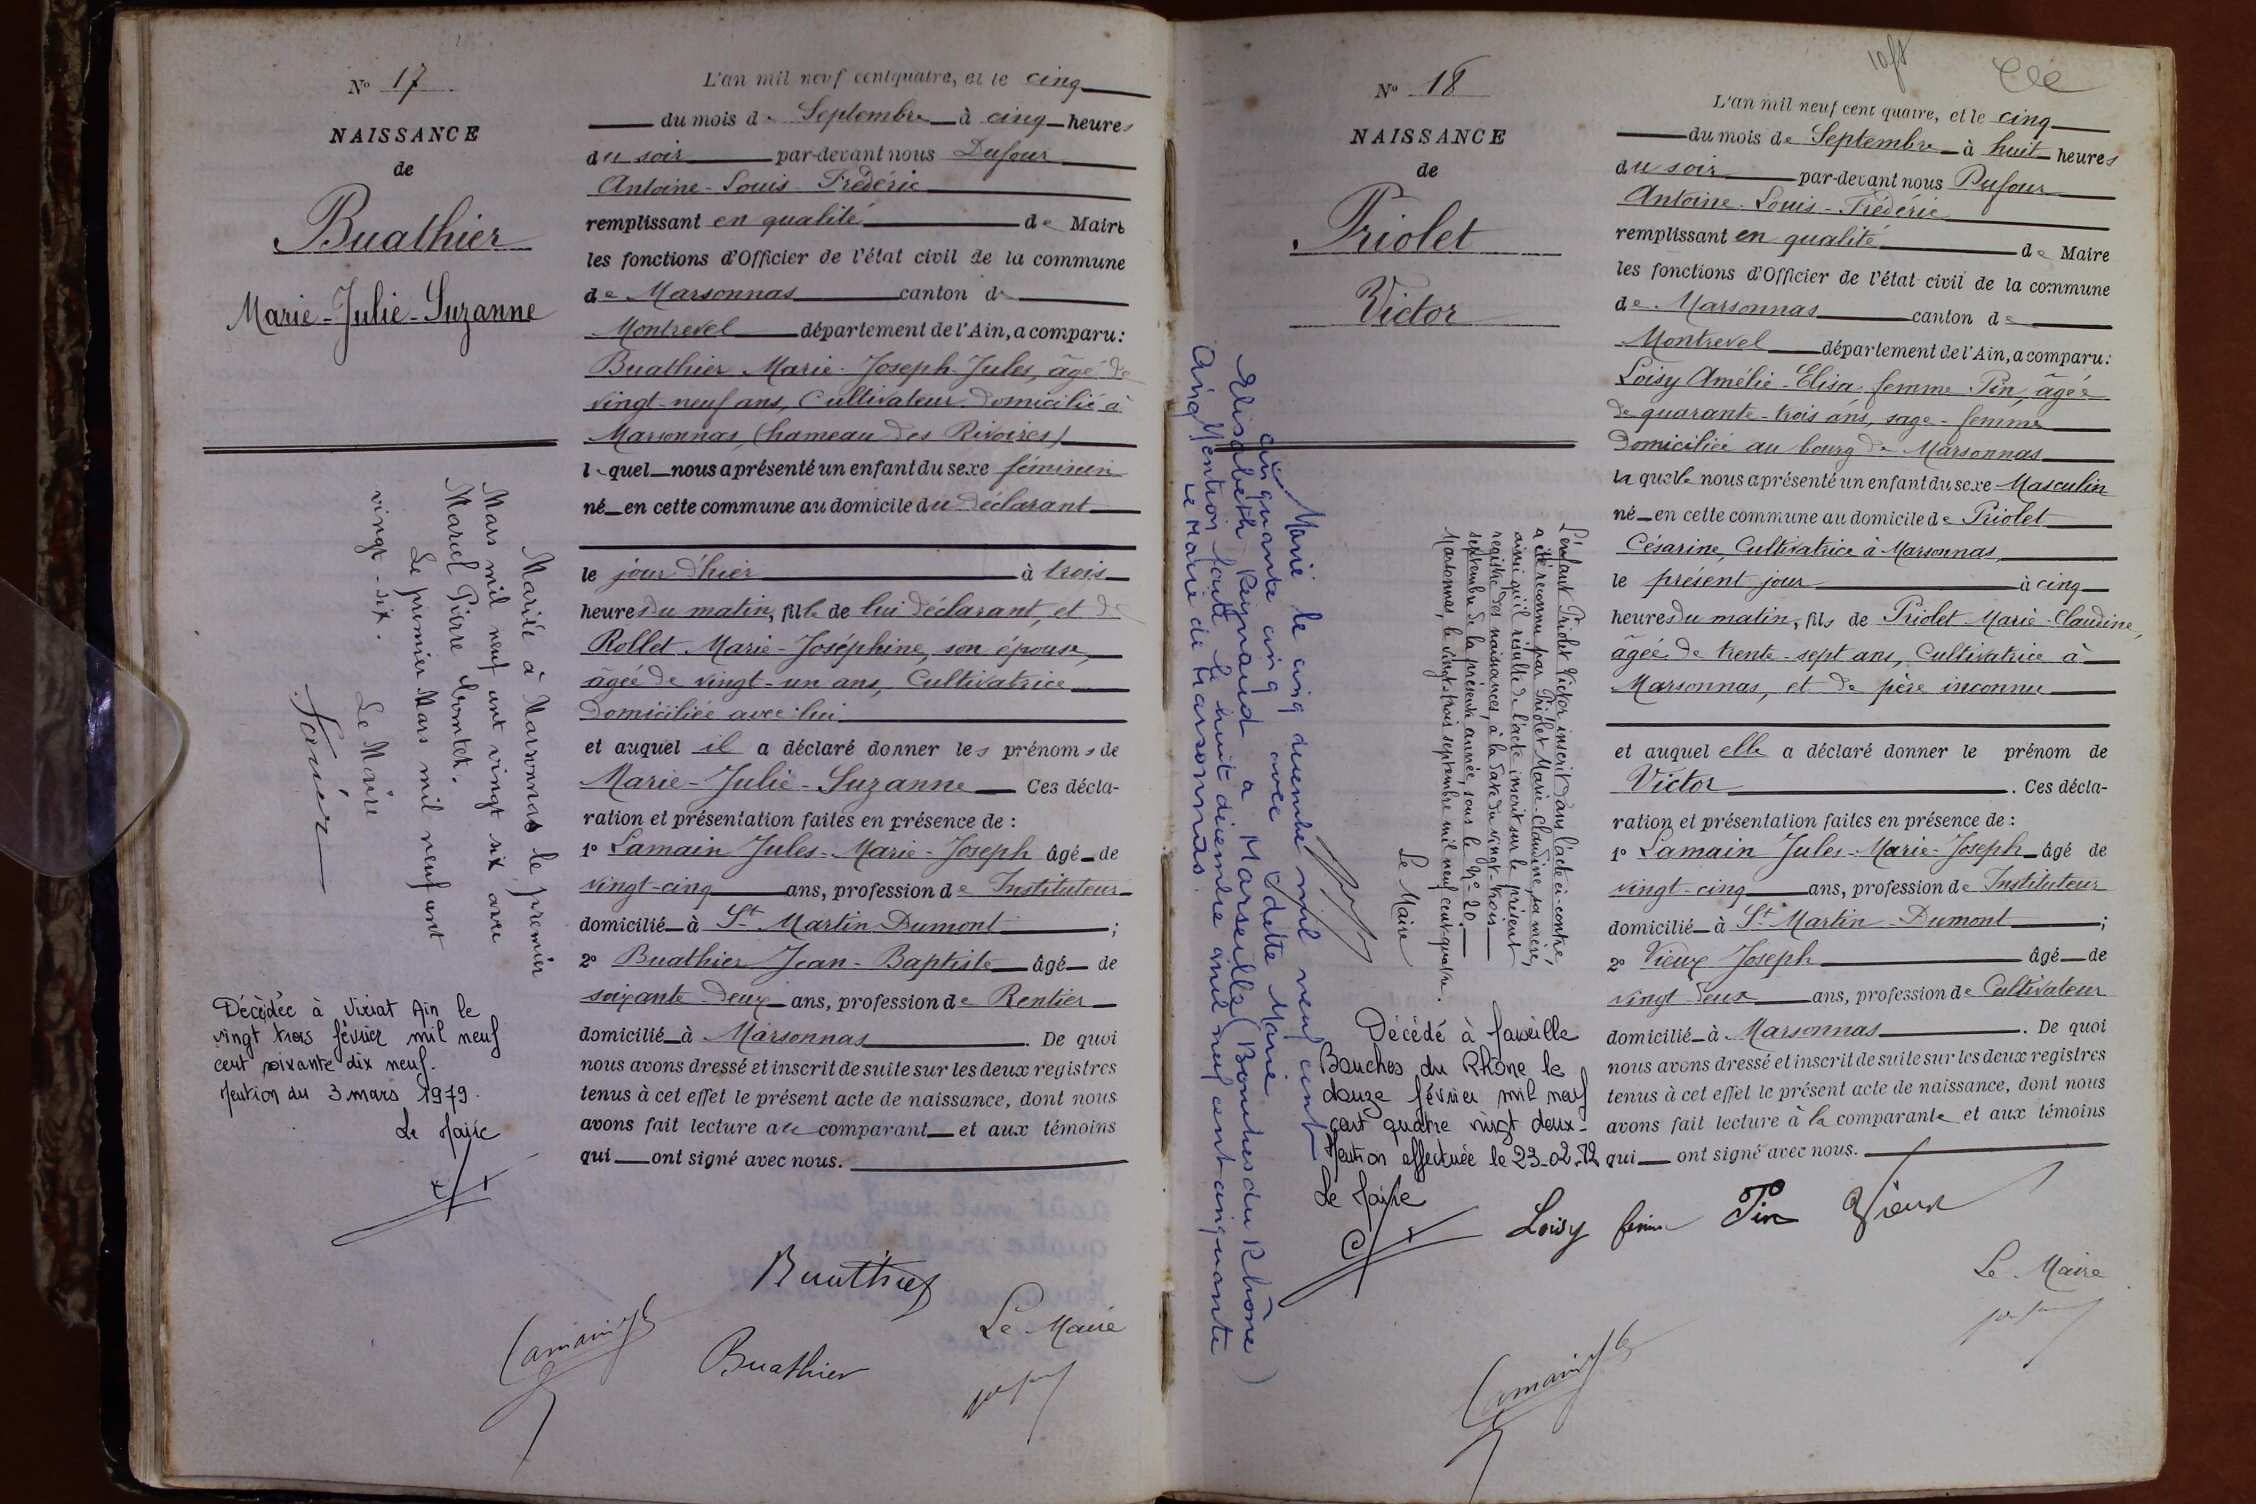 N° 17
NAISSANCE
de
Buathier
Marie-Julie-Suzanne
Mariée à Marsonnas le premier
Mars mil neuf cent vingt six avec
Marcel Pierre Comtet.
Le premier Mars mil neuf cent
vingt-six.
Le Maire
Décédée à Viriat Ain le
vingt trois février mil neuf
cent soixante dix neuf.
Mention du 3 mars 1979.
Le Maire
L'an mil neuf cent quatre, et le cinq
du mois de Septembre à cinq heures
du soir par-devant nous Dufour
Antoine-Louis-Frédéric
remplissant en qualité de Maire
les fonctions d'Officier de l'état civil de la commune
de Marsonnas canton de
Montrevel département de l'Ain, a comparu:
Buathier Marie-Joseph-Jules, âgé de
vingt-neuf ans, Cultivateur domicilié à
Marsonnas, (hameau des Rivoires)
lequel nous a présenté un enfant du sexe féminin
né en cette commune au domicile du déclarant
le jour d'hier à trois
heures du matin, fille de lui déclarant, et de
Rollet Marie-Joséphine, son épouse,
âgée de vingt-un ans, Cultivatrice
domiciliée avec lui
et auquel il a déclaré donner les prénoms de
Marie-Julie-Suzanne Ces décla-
ration et présentation faites en présence de :
1° Lamain Jules-Marie-Joseph âgé de
vingt-cinq ans, profession de Instituteur
domicilié à St Martin Dumont ;
2° Buathier Jean-Baptiste âgé de
soixante-deux ans, profession de Rentier
domicilié à Marsonnas . De quoi
nous avons dressé et inscrit de suite sur les deux registres
tenus à cet effet le présent acte de naissance, dont nous
avons fait lecture au comparant et aux témoins
qui ont signé avec nous.
Buathier
Lamain
Buathier
Le Maire
N° 18
NAISSANCE
de
Priolet
Victor
Marié le cinq décembre mil neuf cent
cinquante cinq avec Odette Marie
Elisabeth Reynaud à Marseille (Bouches du Rhône)
Mention faite le huit décembre mil neuf cent cinquante
cinq Le Maire de Marsonnas.
L'enfant Priolet Victor inscrit dans l'acte ci-contre,
a été reconnu par Priolet Marie-Claudine, sa mère,
ainsi qu'il résulte de l'acte inscrit sur le présent
registre des naissances, à la date du vingt-trois
septembre de la présente année, sous le N° 20.
Marsonnas, le vingt-trois septembre mil neuf cent quatre.
Le Maire
Décédé à Marseille
Bouches du Rhône le
douze février mil neuf
cent quatre vingt deux-
Mention effectuée le 23-02-82
Le Maire
L'an mil neuf cent quatre, et le cinq
du mois de Septembre à huit heures
du soir par-devant nous Dufour
Antoine-Louis-Frédéric
remplissant en qualité de Maire
les fonctions d'Officier de l'état civil de la commune
de Marsonnas canton de
Montrevel département de l'Ain, a comparu:
Loisy Amélie-Elisa femme Pin, âgée
de quarante-trois ans, sage-femme
domiciliée au bourg de Marsonnas
laquelle nous a présenté un enfant du sexe Masculin
né en cette commune au domicile de Priolet
Césarine, Cultivatrice à Marsonnas,
le présent jour à cinq
heures du matin, fils de Priolet Marie-Claudine,
âgée de trente-sept ans, Cultivatrice à
Marsonnas, et de père inconnu
et auquel elle a déclaré donner le prénom de
Victor . Ces décla-
ration et présentation faites en présence de :
1° Lamain Jules-Marie-Joseph âgé de
vingt-cinq ans, profession de Instituteur
domicilié à St Martin-Dumont ;
2° Vieux Joseph âgé de
vingt-deux ans, profession de Cultivateur
domicilié à Marsonnas . De quoi
nous avons dressé et inscrit de suite sur les deux registres
tenus à cet effet le présent acte de naissance, dont nous
avons fait lecture à la comparante et aux témoins
qui ont signé avec nous.
Loisy femme Pin Vieux
Le Maire
Lamain